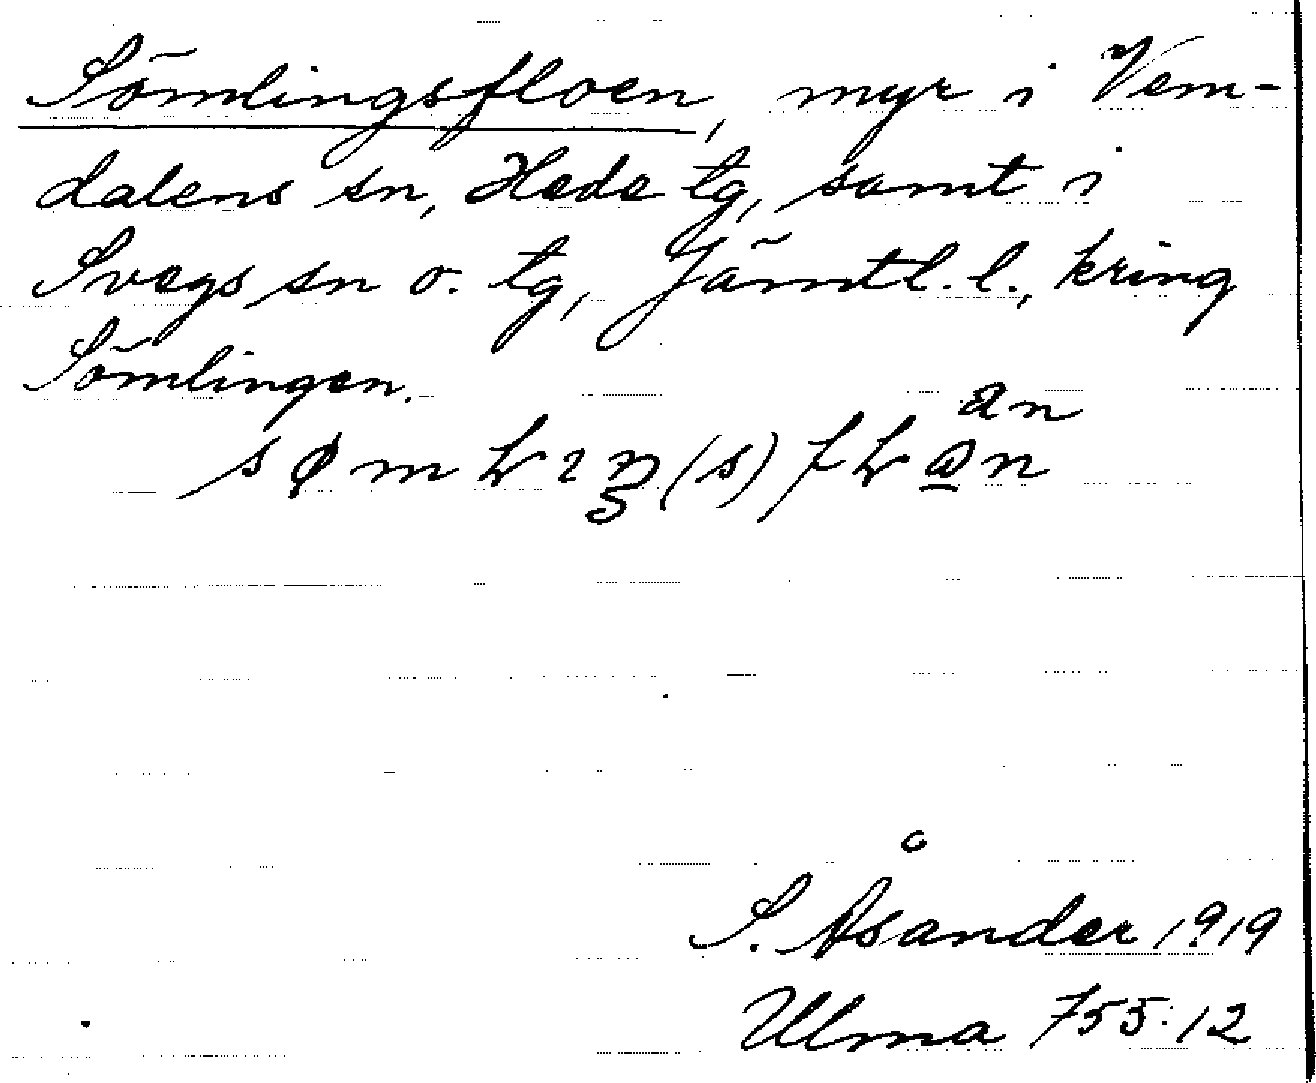 Sömlingsfloen, myr i Vem-
dalens sn, Hede tg, samt i
Svegs sn o. tg, Jämtl. l., kring
Sömlingen.
an
S. Åsander 1919
Ulma 755:12